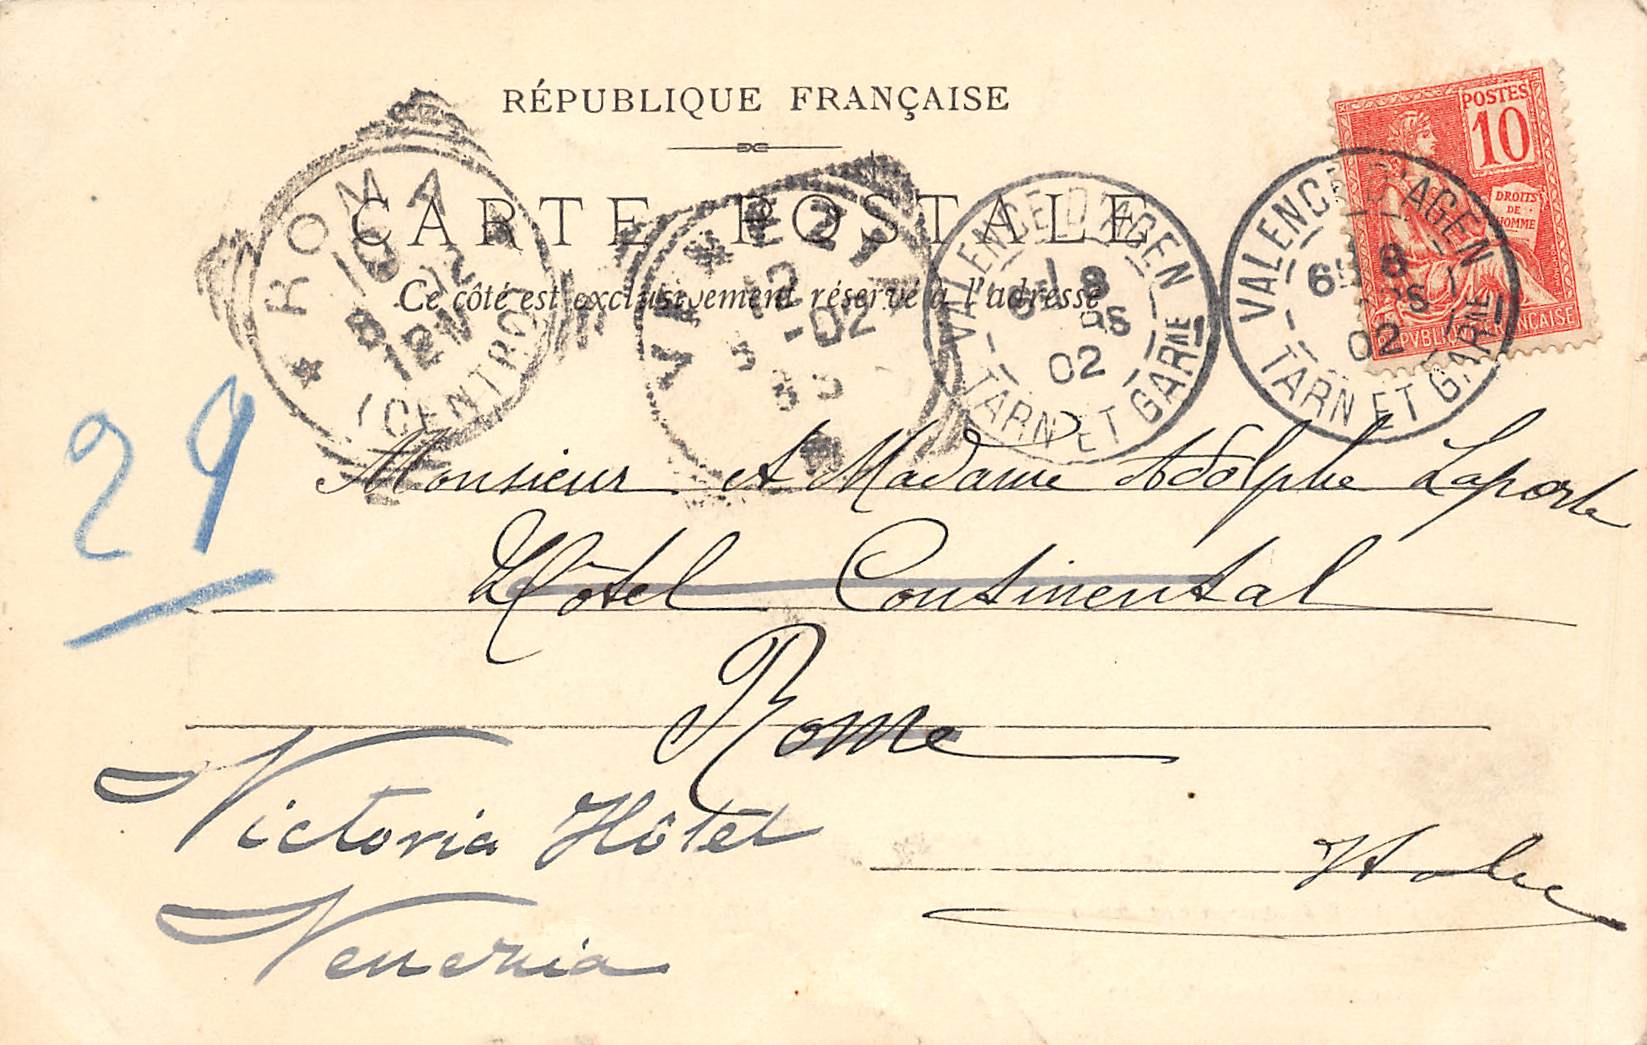 RÉPUBLIQUE FRANÇAISE
CARTE POSTALE
Ce côté est exclusivement réservé à l'adresse
POSTES
10
DROITS
DE
L'HOMME
REPVBLIQVE FRANÇAISE
ROMA
10
3 02
12M
(CENTRO)
12
-02
VALENCE D'AGEN
6E 8
RS
02
TARN ET GARNE
VALENCE D'AGEN
6E 8
RS
02
TARN ET GARNE
29
Monsieur et Madame Adolphe Laporte
Hôtel Continental
Rome
Victoria Hôtel
Venezia
Italie